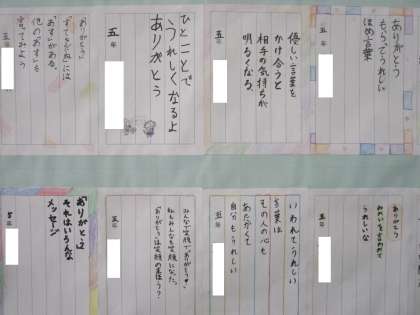 ありがとう
もらってうれしい
ほめ言葉
五年
優しい言葉を
かけ合うと
相手の気持ちが
明るくなる
五年
ひとことで
うれしくなるよ
ありがとう
五年
ありがとう
言ってみよう
五年
ありがとう
うれしいな
五年
いわれてうれしい
言葉は
その人の心も
あたたかくて
自分もうれしい
五年
みんなで笑顔で「ありがとう」
私もみんなも笑顔になった。
五年
「ありがとう」
それはいろんな
メッセージ
５年